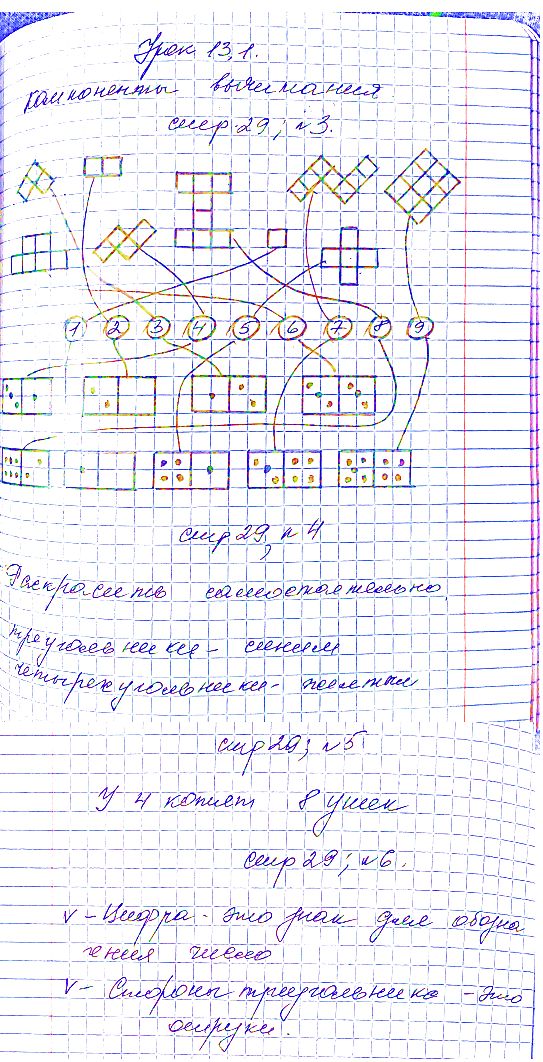 Урок 13,1.
Компоненты вычитания
стр.29; №3.
1 2 3 4 5 6 7 8 9
стр 29, №4
Раскрасить самостоятельно
треугольники - синим
четырехугольники - желтым
стр 29; №5
У 4 котят 8 ушек
стр 29; №6.
v - Цифра - это знак для обозна
чения число
v - Стороны треугольника - это
отрезки.